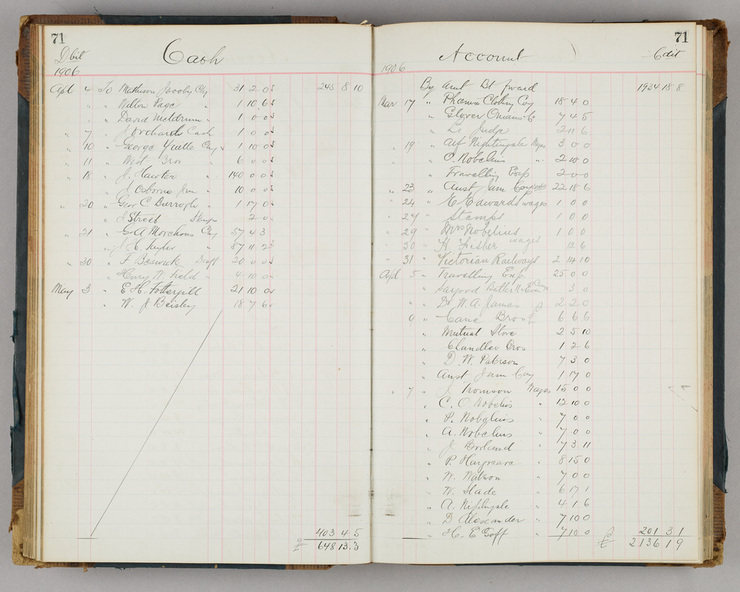 71
Dbit Cash
1906
Apl 4 To Mathieson Jacoby Chq 31 2 0 245 8 10
1 10 6
" David Meldrum " 1 0 0
" 7 " J Orchard Cash 1 0 0
" 10 " George Yuille Chq 1 10 0
" 11 " Bros " 6 0 0
" 18 " J. " 140 0 0
" J. Osborne " 10 0 0
" 20 " Geo C Burrough " 1 17 0
" J Street Stamps 2 0
" 21 " G A Chq 57 4 3
" J. H. " 87 11 2
" 30 " F Draft 20 0 0
" Harry W Field " 4 10 0
May 3 " E H Fothergill 21 10 0
" W. J Beisley 18 7 6
403 4 5
£ 648 13 3
71
Account Cdit
1906
By Amt Bt forward 1934 18 8
Mar 17 " Phoenix Clothing Coy 18 4 0
" Glover Onians & Co 7 4 5
" L. Judge 2 11 6
" 19 " Alf Nightingale Wages 3 0 0
" O. Nobelius " 2 10 0
" Travelling Exps 2 0 0
" 23 " Aust Jam Coy 22 18 6
" 24 " E Edwards wages 1 0 0
" 27 " Stamps 1 0 0
" 29 " Mrs Nobelius 1 0 0
" 30 " H Fisher wages 12 6
" 31 " Victorian Railways 2 14 10
Apl 5 " Travelling Exps 25 0 0
" Butter 3 0
" Dr W. A. James 2 2 0
" Bros 6 6 6
" Mutual Store 2 5 10
" Chandler Bros 1 2 6
" D. W. Paterson 7 3 0
" Aust Jam Coy 1 7 0
" 7 " J Thomson Wages 15 0 0
" C. E Nobelius " 12 10 0
" P. Nobelius " 7 0 0
" A. Nobelius " 7 0 0
" J " 7 3 11
" P. Hargreave " 8 15 0
" W. Watson " 7 0 0
" W. Slade " 6 7 1
" A. Nightingale " 4 1 6
" D Alexander " 7 10 0
" H. E Goff " 7 10 0 201 3 1
£ 2136 1 9